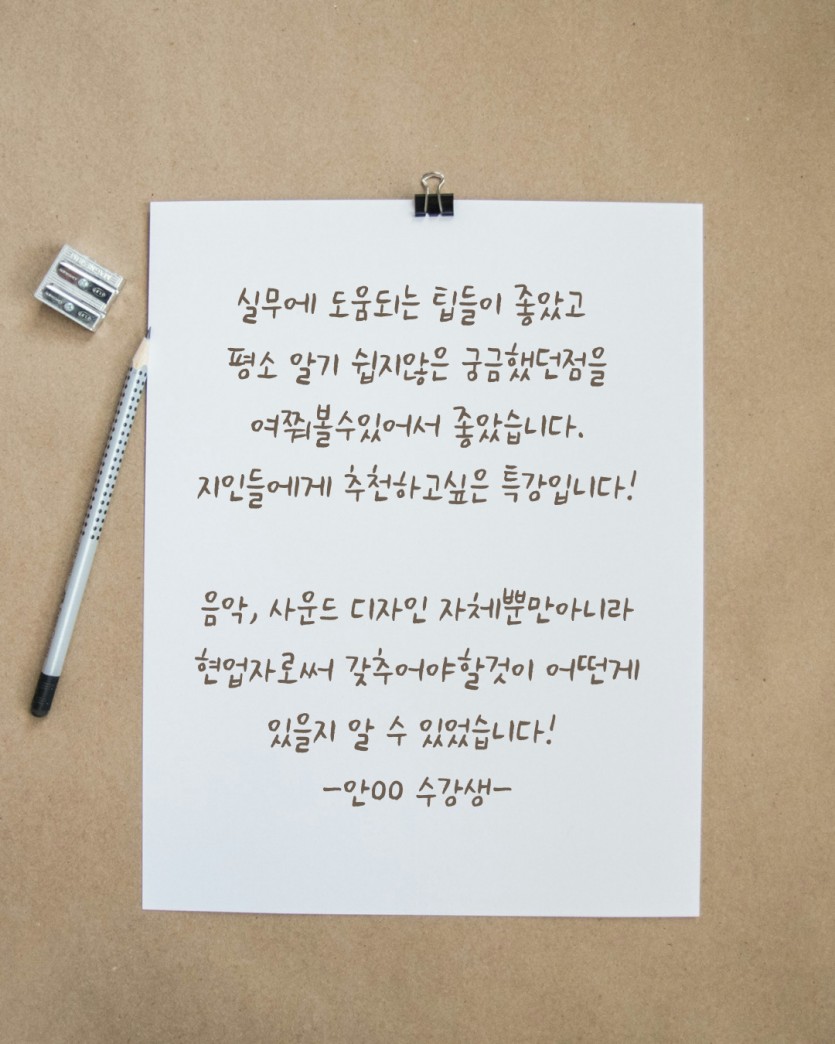 실무에 도움되는 팁들이 좋았고
평소 알기 쉽지않은 궁금했던점을
여쭤볼수있어서 좋았습니다.
지인들에게 추천하고싶은 특강입니다!
음악, 사운드 디자인 자체뿐만아니라
현업자로써 갖추어야할것이 어떤게
있을지 알 수 있었습니다!
-안OO 수강생-